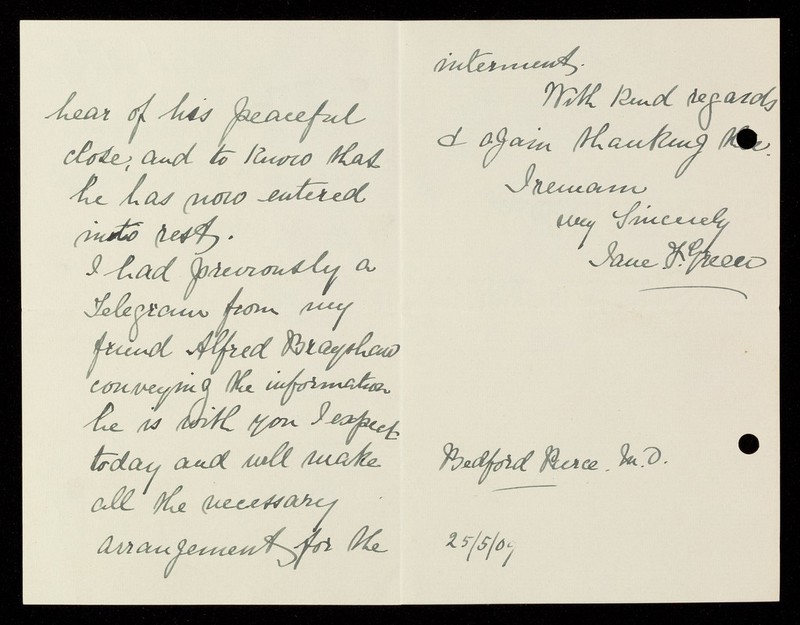 hear of his peaceful
close, and to know that
he has now entered
into rest.
I had previously a
Telegram from my
friend Alfred Brayshaw
conveying the information
he is with you I expect
today and will make
all the necessary
arrangements for the
interment.
With kind regards
& again thanking
I remain
very Sincerely
Jane F. Green
Bedford Pierce. M.D.
25/5/09